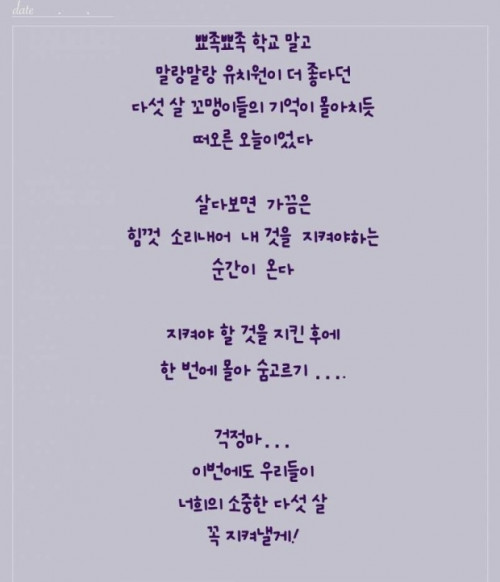 date . . .
뾰족뾰족 학교 말고
말랑말랑 유치원이 더 좋다던
다섯 살 꼬맹이들의 기억이 몰아치듯
떠오른 오늘이었다
살다보면 가끔은
힘껏 소리내어 내 것을 지켜야하는
순간이 온다
지켜야 할 것을 지킨 후에
한 번에 몰아 숨고르기 ....
걱정마...
이번에도 우리들이
너희의 소중한 다섯 살
꼭 지켜낼게!